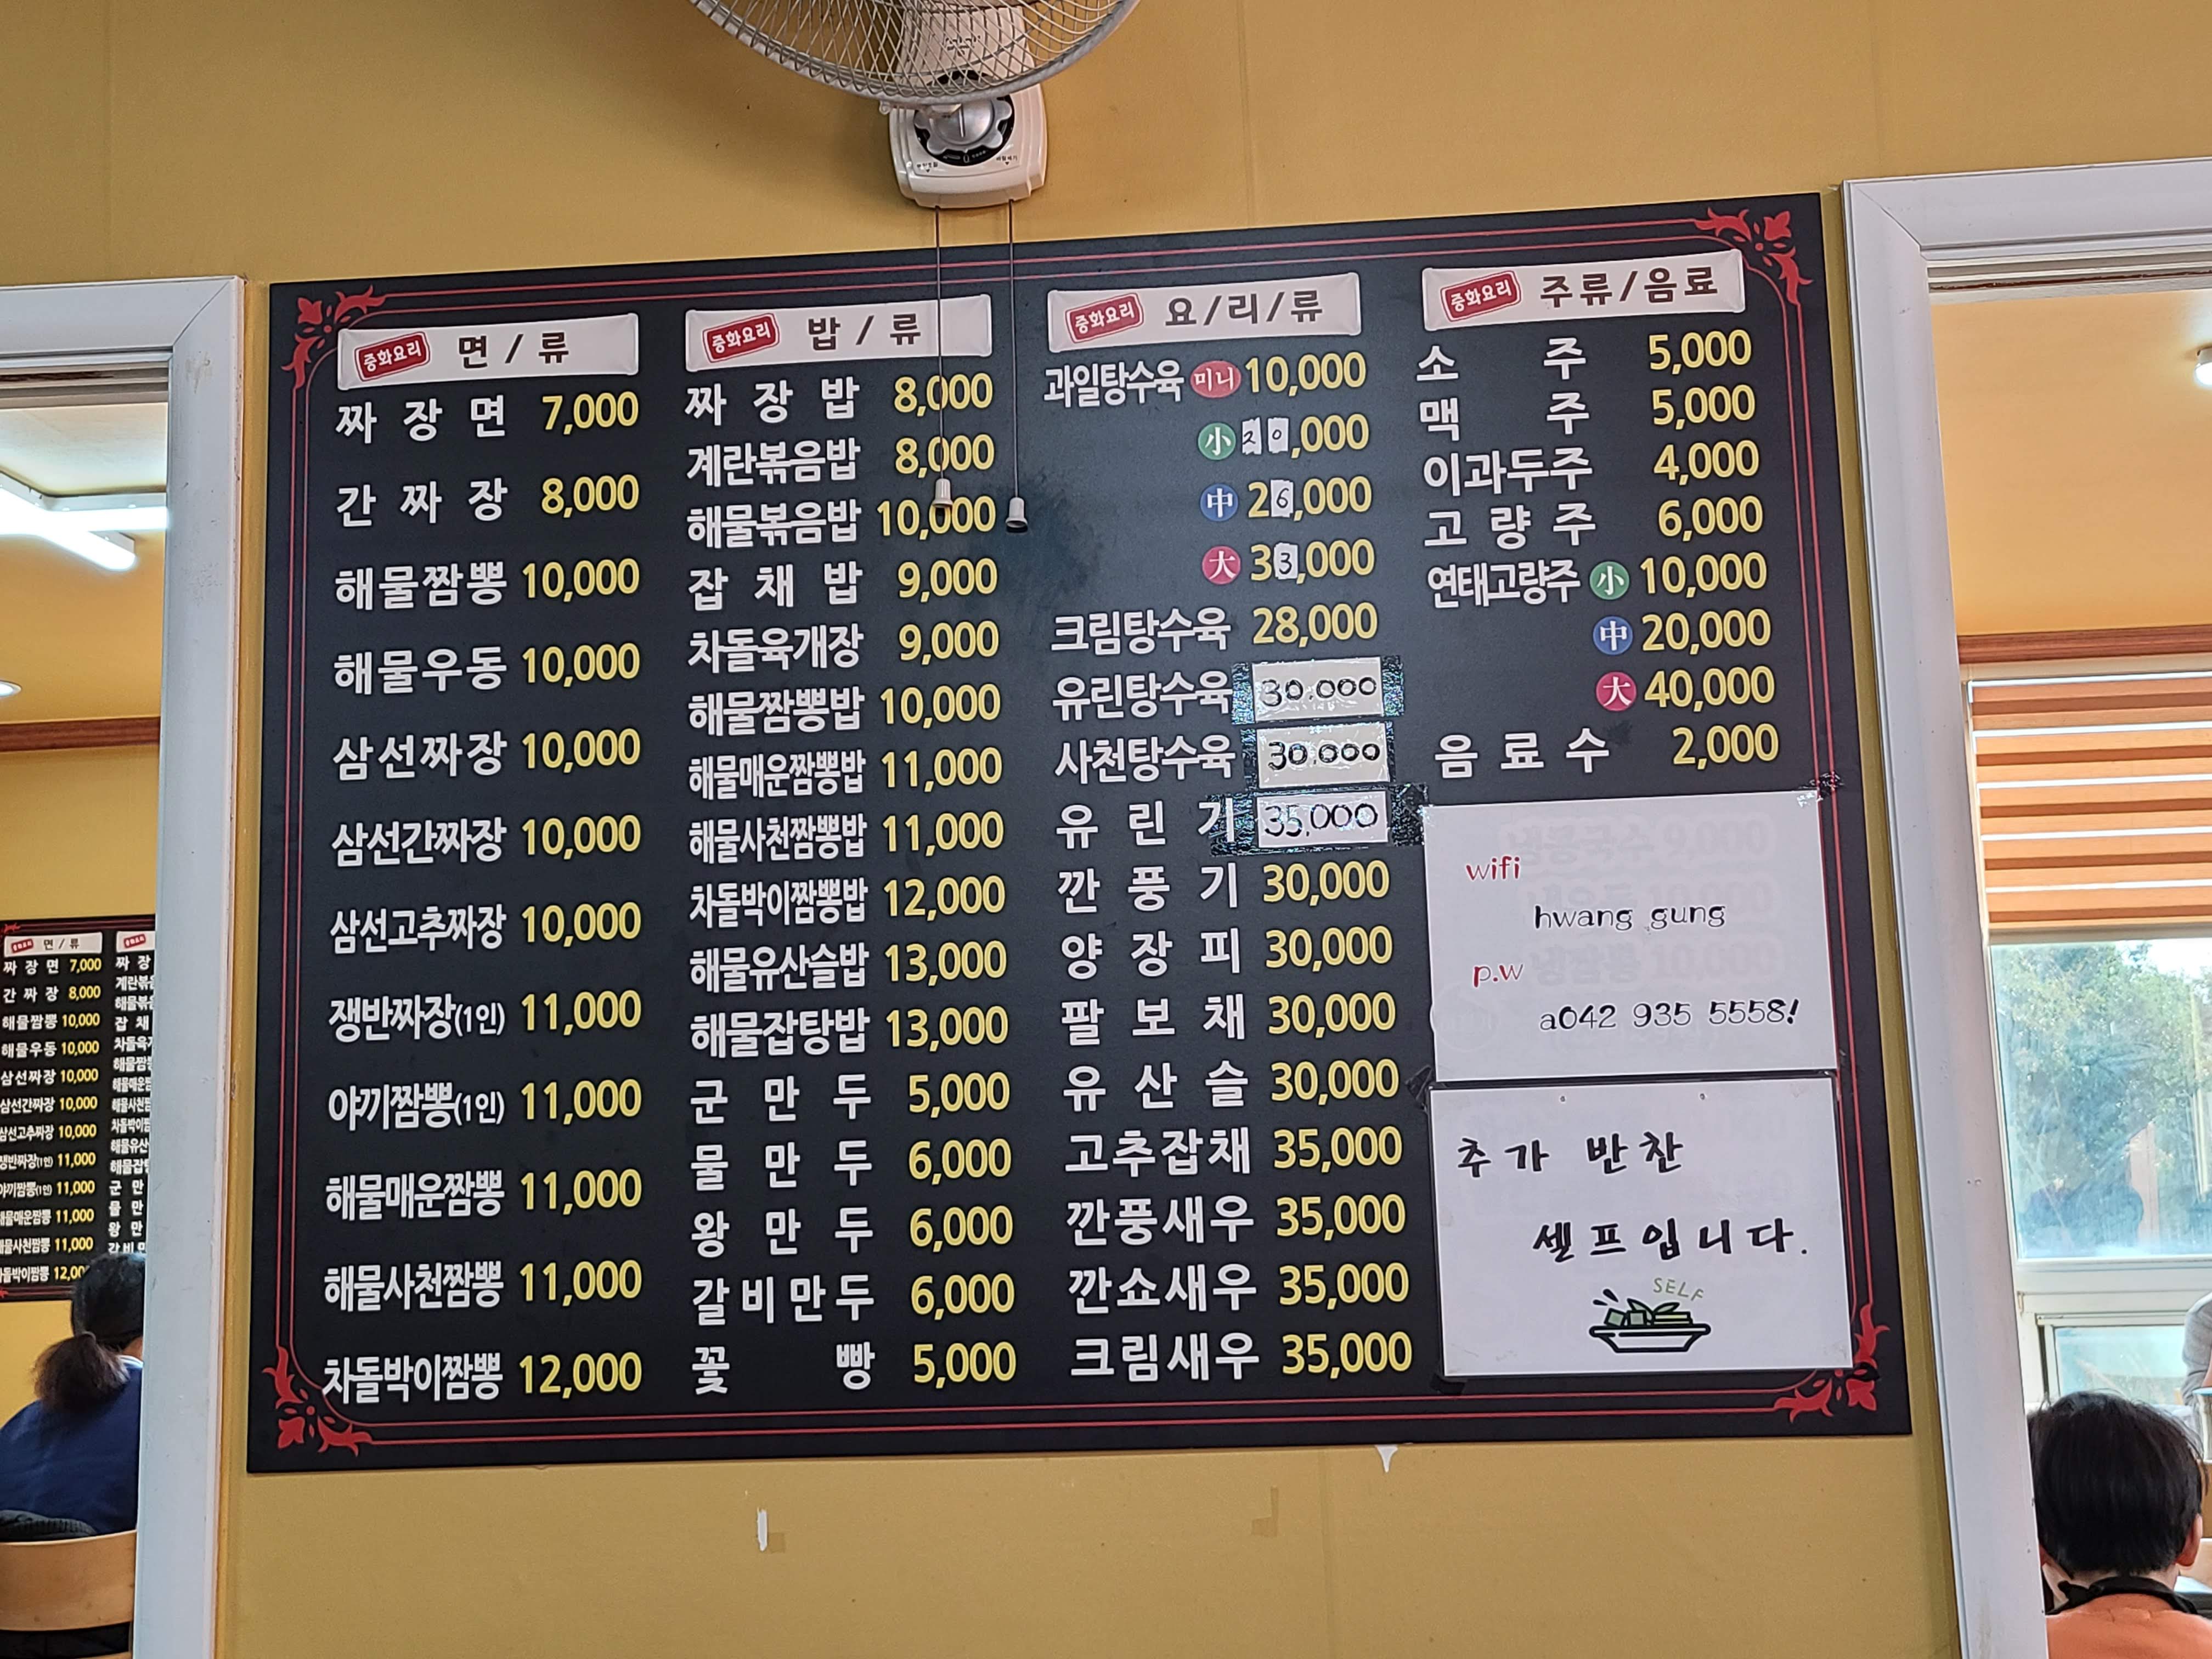 중화요리 면/류
짜장면 7,000
간짜장 8,000
해물짬뽕 10,000
해물우동 10,000
삼선짜장 10,000
삼선간짜장 10,000
삼선고추짜장 10,000
쟁반짜장(1인) 11,000
야끼짬뽕(1인) 11,000
해물매운짬뽕 11,000
해물사천짬뽕 11,000
차돌박이짬뽕 12,000
중화요리 밥/류
짜장밥 8,000
계란볶음밥 8,000
해물볶음밥 10,000
잡채밥 9,000
차돌육개장 9,000
해물짬뽕밥 10,000
해물매운짬뽕밥 11,000
해물사천짬뽕밥 11,000
차돌박이짬뽕밥 12,000
해물유산슬밥 13,000
해물잡탕밥 13,000
군만두 5,000
물만두 6,000
왕만두 6,000
갈비만두 6,000
꽃빵 5,000
중화요리 요/리/류
과일탕수육 미니 10,000
小 20,000
中 26,000
大 33,000
크림탕수육 28,000
유린탕수육 30.000
사천탕수육 30.000
유린기 35,000
깐풍기 30,000
양장피 30,000
팔보채 30,000
유산슬 30,000
고추잡채 35,000
깐풍새우 35,000
깐쇼새우 35,000
크림새우 35,000
중화요리 주류/음료
소주 5,000
맥주 5,000
이과두주 4,000
고량주 6,000
연태고량주 小 10,000
中 20,000
大 40,000
음료수 2,000
wifi
hwang gung
p.w
a042 935 5558!
추가 반찬
셀프입니다.
SELF
면/류
짜장면 7,000
간짜장 8,000
해물짬뽕 10,000
해물우동 10,000
삼선짜장 10,000
삼선간짜장 10,000
삼선고추짜장 10,000
쟁반짜장(1인) 11,000
야끼짬뽕(1인) 11,000
해물매운짬뽕 11,000
해물사천짬뽕 11,000